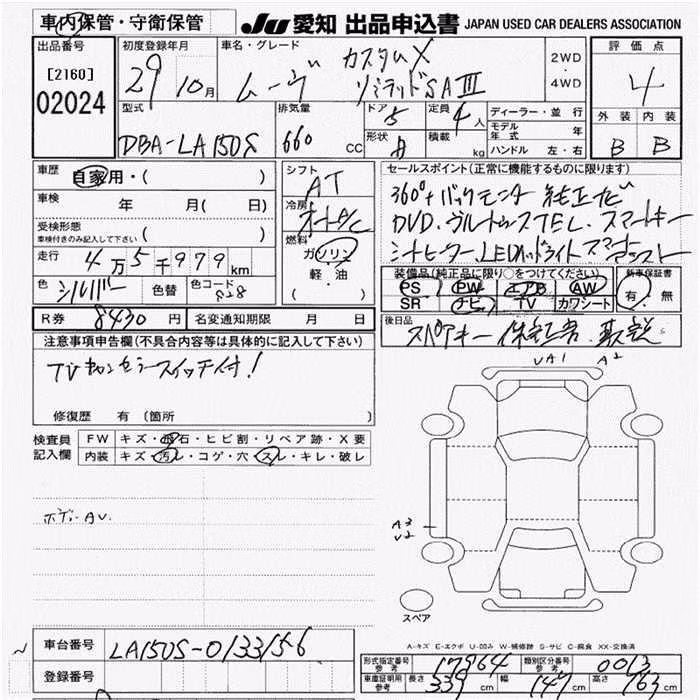 車内保管・守衛保管
JU 愛知 出品申込書 JAPAN USED CAR DEALERS ASSOCIATION
出品番号 初度登録年月 車名・グレード 評価点
[2160]
02024
29年10月
カスタムX
ムーヴ リミテッドSAⅢ
2WD・4WD
4
型式 排気量 ドア 5 定員 4人 ディーラー・並行 外装 内装
DBA-LA150S 660 cc
形状 積載 kg
モデル年式 年
ハンドル 左・右
B B
車歴 自家用・( )
車検 年 月( 日)
受検形態
車検付きのみ記入して下さい ( )
走行 4万5千979km
色 シルバー 色替 色コード S28
シフト AT
冷房 オートA/C
燃料 ガソリン
軽・油
( )
セールスポイント(正常に機能するものに限ります)
360°バックモニター 純正ナビ
DVD. ブルートゥースTEL. スマートキー
シートヒーター. LEDヘッドライト
装備品(純正品に限り○をつけてください) 新車保証書
PS PW エアB AW 有・無
SR ナビ TV カワシート
R券 8430円 名変通知期限 月 日
後日品
スペアキー 保証書. 取説
注意事項申告欄(不具合内容等は具体的に記入して下さい)
TVキャンセラースイッチ付!
修復歴 有(箇所 )
検査員記入欄
FW キズ・飛石・ヒビ割・リペア跡・X要
内装 キズ・汚レ・コゲ・穴・スレ・キレ・破レ
ボディAU.
UA1 A2
A3
U2
スペア
A-キズ E-エクボ U-凹み W-補修跡 S-サビ C-腐食 XX-交換済
車台番号 LA150S-0133156
登録番号
形式指定番号 参考 17964 類別区分番号 参考 0013
車庫証明用 参考 長さ 339cm 幅 147cm 高さ 163cm